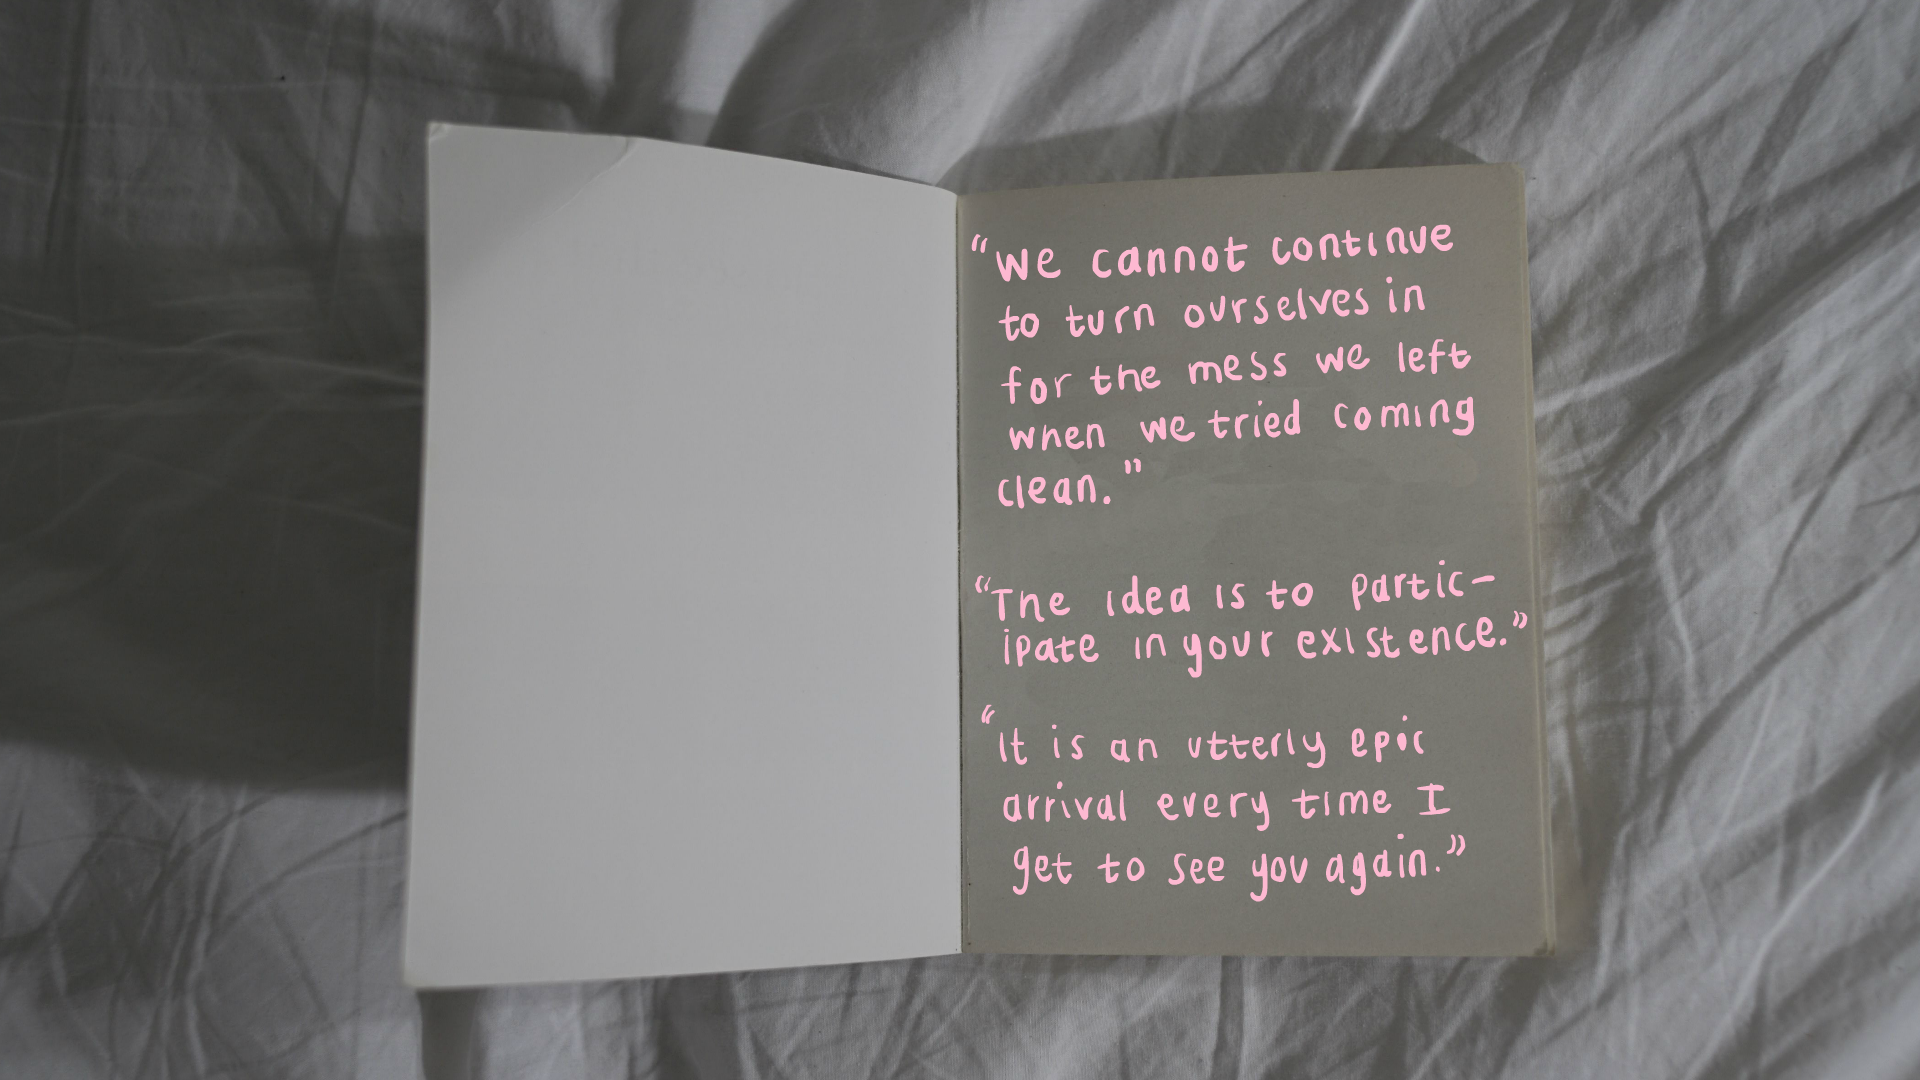 “We cannot continue
to turn ourselves in
for the mess we left
when we tried coming
clean.”
“The idea is to partic-
ipate in your existence.”
“It is an utterly epic
arrival every time I
get to see you again.”